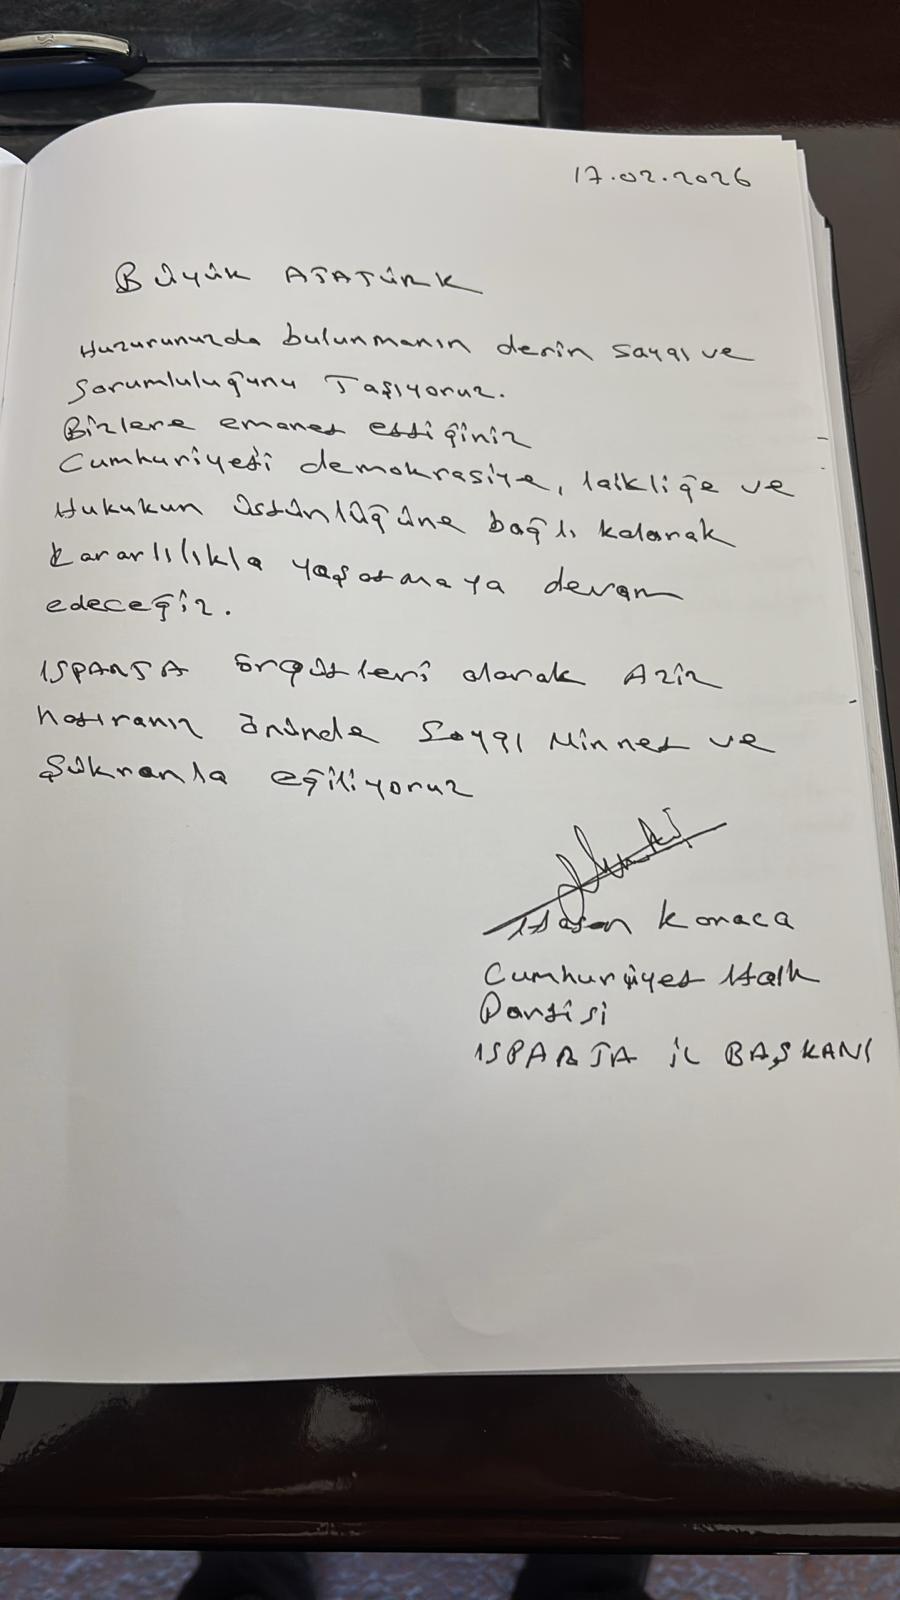 17.02.2026
BÜYÜK ATATÜRK
Huzurunuzda bulunmanın derin saygı ve
Sorumluluğunu Taşıyoruz.
Bizlere emanet ettiğiniz
Cumhuriyeti demokrasiye, laikliğe ve
Hukukun üstünlüğüne bağlı kalarak
kararlılıkla yaşatmaya devam
edeceğiz.
ISPARTA örgütleri olarak Aziz
hatıranız önünde Saygı Minnet ve
Şükranla eğiliyoruz
Hasan Karaca
Cumhuriyet Halk
Partisi
ISPARTA İL BAŞKANI